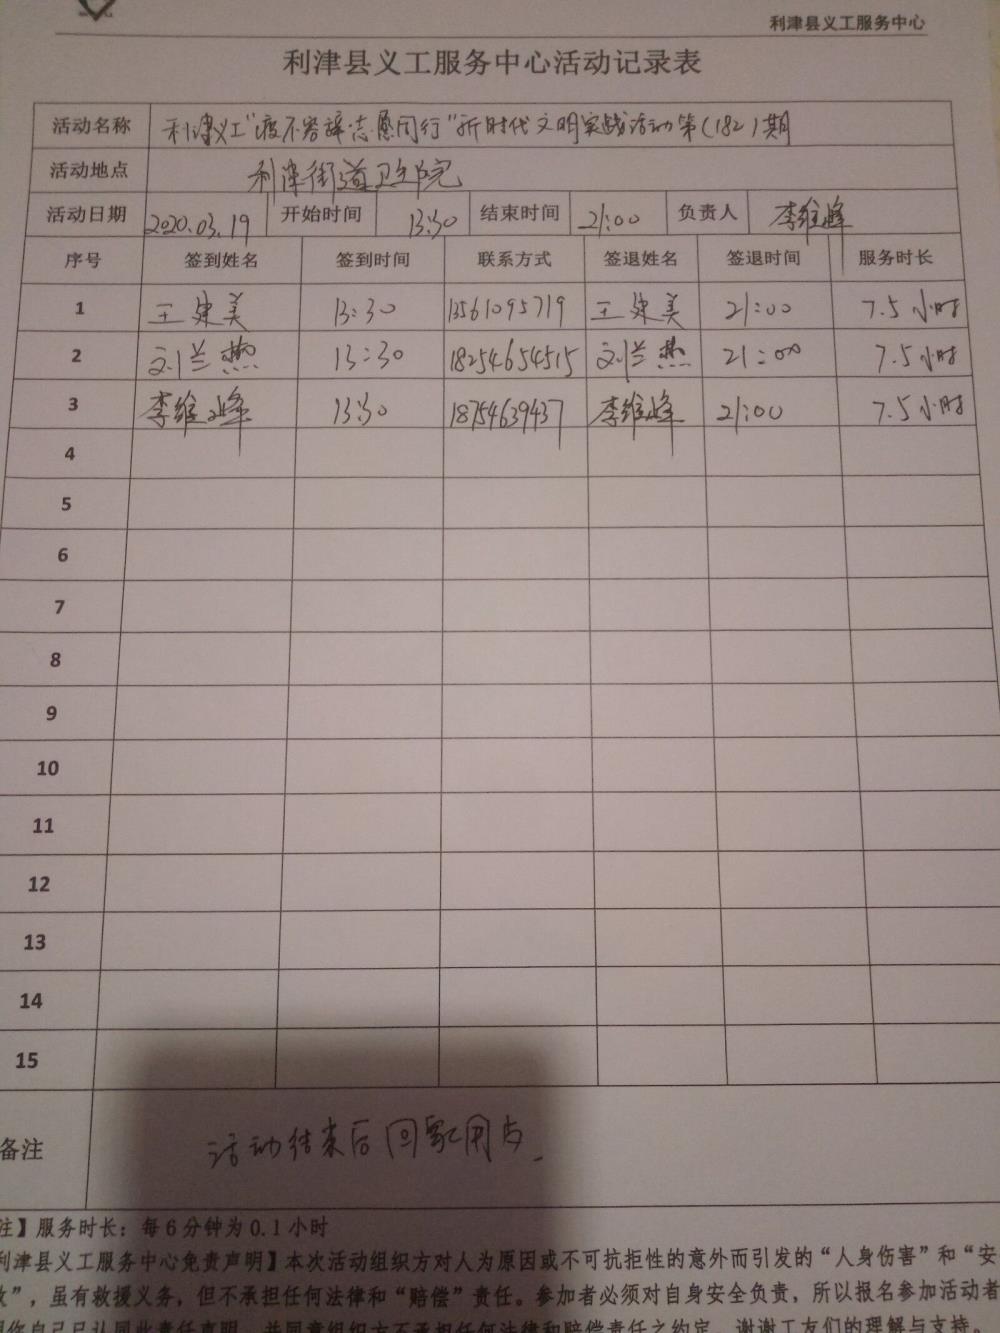 利津县义工服务中心
利津县义工服务中心活动记录表
活动名称 利津义工"疫不容辞·志愿同行"新时代文明实践活动第(182)期
活动地点 利津街道卫生院
活动日期 2020.03.19 开始时间 13:30 结束时间 21:00 负责人 李维峰
序号 签到姓名 签到时间 联系方式 签退姓名 签退时间 服务时长
1 王建美 13:30 13561095719 王建美 21:00 7.5小时
2 刘兰燕 13:30 18254654515 刘兰燕 21:00 7.5小时
3 李维峰 13:30 18754639437 李维峰 21:00 7.5小时
4
5
6
7
8
9
10
11
12
13
14
15
备注 活动结束后回家用占
注】服务时长：每6分钟为0.1小时
利津县义工服务中心免责声明】本次活动组织方对人为原因或不可抗拒性的意外而引发的“人身伤害”和“安
”，虽有救援义务，但不承担任何法律和“赔偿”责任。参加者必须对自身安全负责，所以报名参加活动者
你自己已认同此责任声明，并同意组织方不承担任何法律和赔偿责任之约定。谢谢工友们的理解与支持。